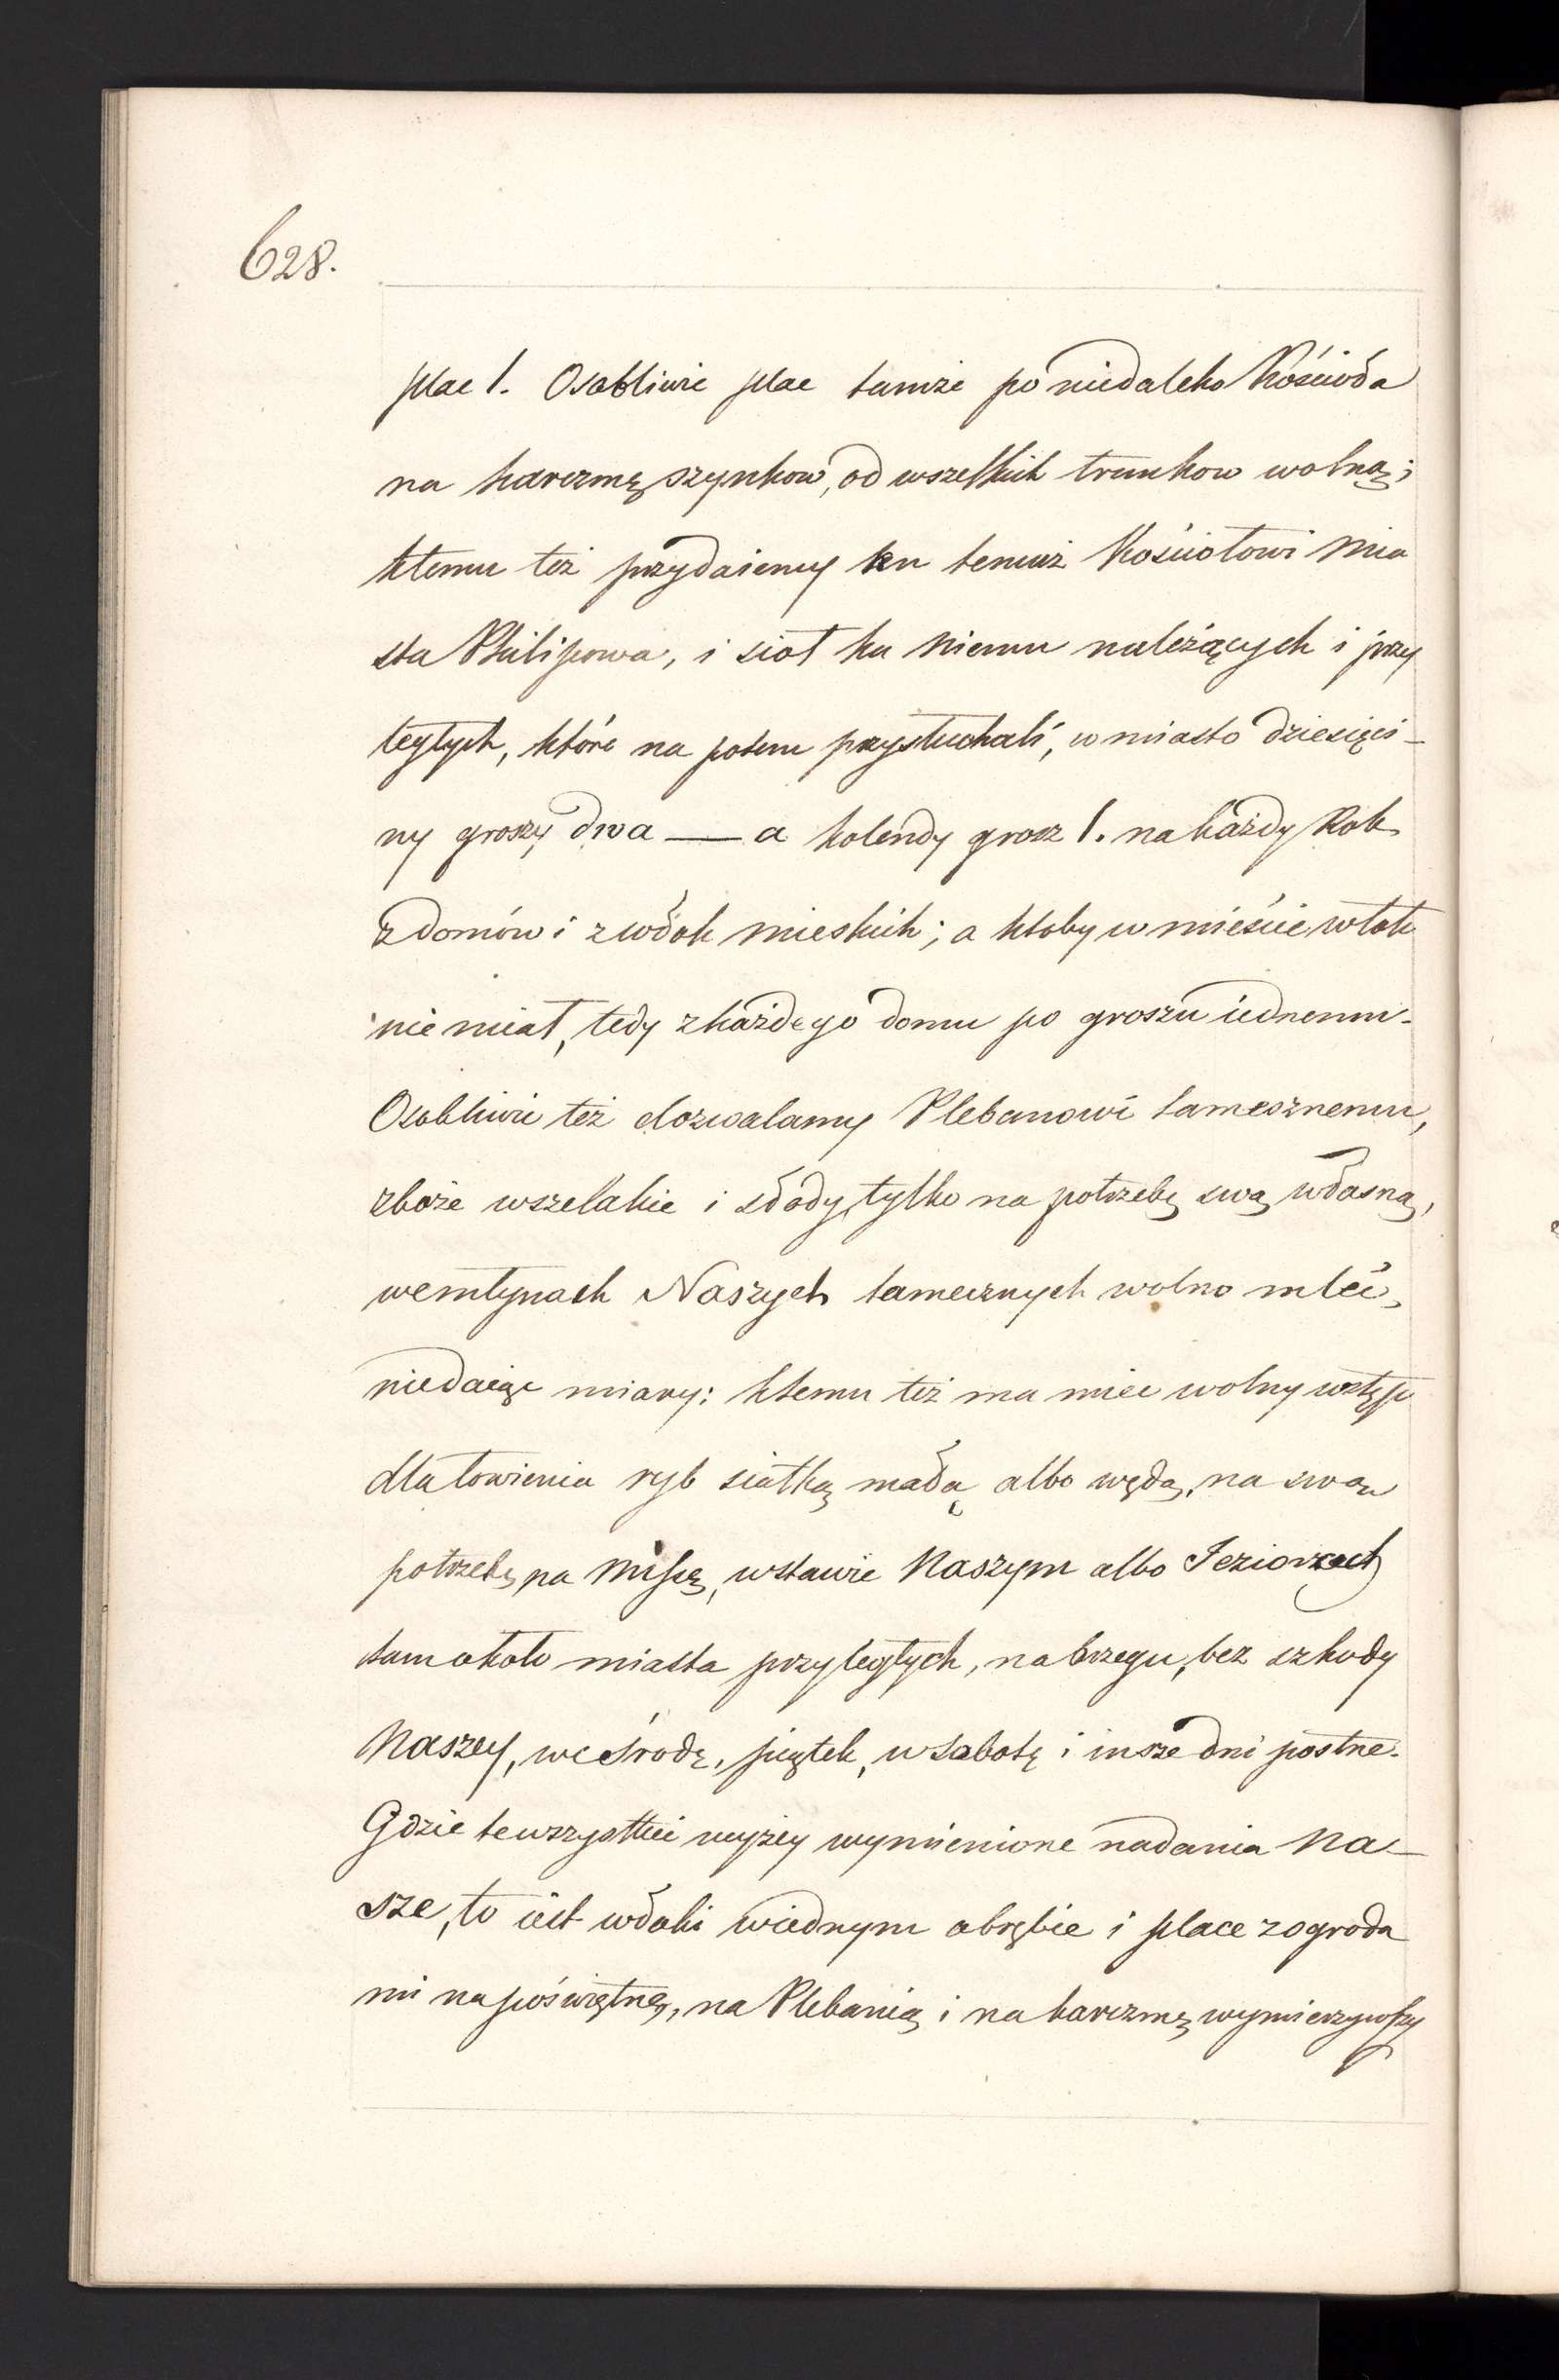 628.
plac 1. Osobliwie plac tamże po niedaleko Kościoła
na karczmę szynkow, od wszelkich trunkow wolną;
ktemu też przydaiemy ku temuż Kościołowi mia
sta Philipowa, i sioł ku niemu należących i przy
ległych, które na potem przysłuchali, w miasto dziesięci-
ny groszy dwa — a kolendy grosz 1. na każdy Rok
z domów i z włok mieskich; a ktoby w mieście włok
nie miał, tedy z każdego domu po groszu iednemu.
Osobliwie też dozwalamy Plebanowi tamesznemu,
zboże wszelakie i słody, tylko na potrzebę swą własną,
we młynach Naszych tamecznych wolno mleć,
niedaiąc miary: ktemu też ma miec wolny wstęp
dla łowienia ryb siatką małą albo wędą, na swą
potrzebę na misę, w stawie Naszym albo Jeziorach
tam około miasta przyległych, na brzegu, bez szkody
Naszey, we środę, piątek, w sobotę i insze dni postne.
Gdzie te wszystkie wyżey wymienione nadania Na-
sze, to iest włoki w iednym obrębie i place z ogroda
mi na poświętne, na Plebanią i na karczmę wymierzywszy